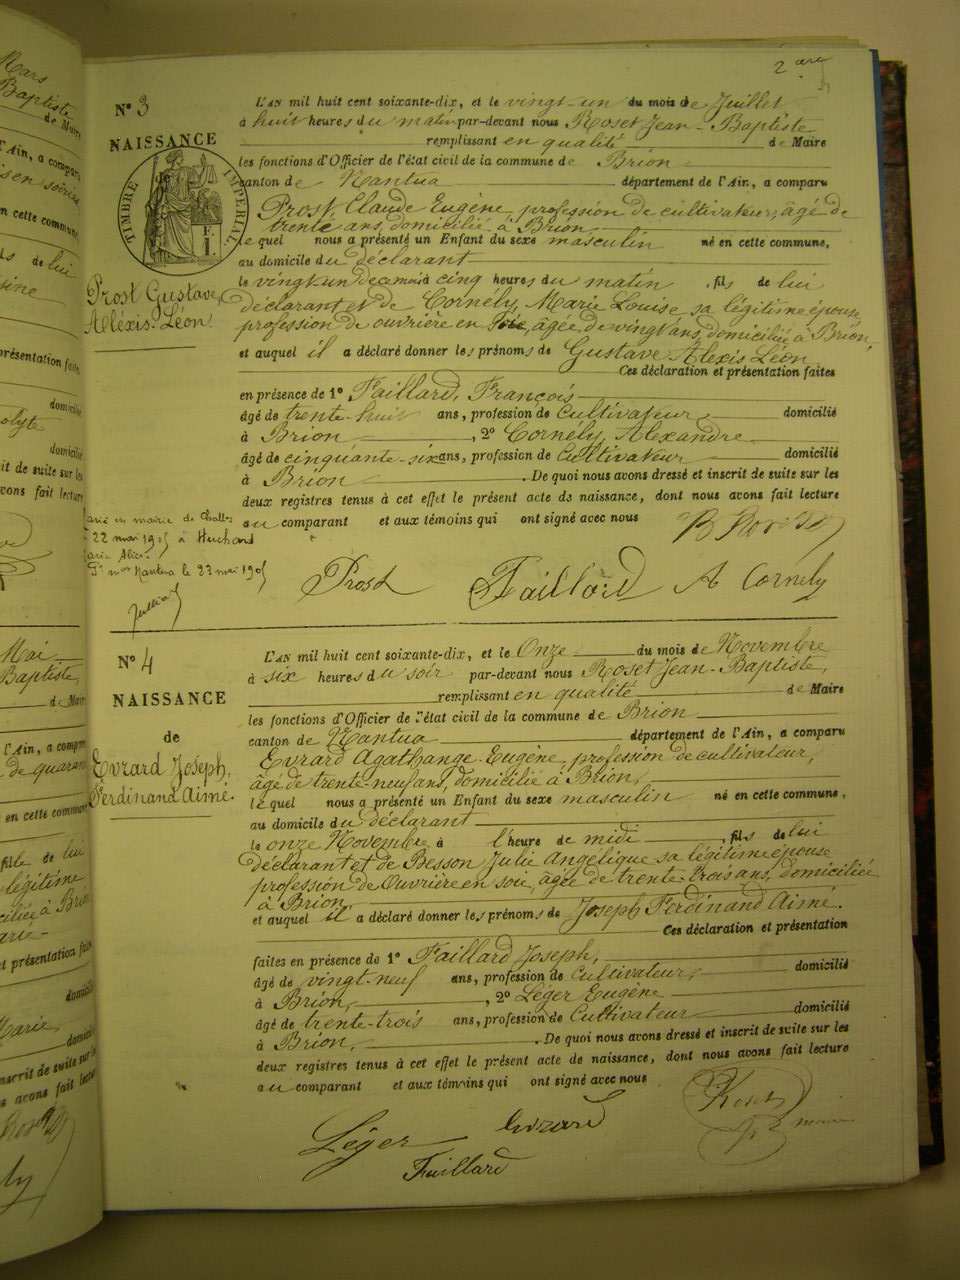 Mars
Baptiste
de Maire
l'Ain, a comparu
en cette commune
de lui
présentation faites
domicilié
domicilié
it de suite sur les
vons fait lecture
Mai
Baptiste
de Maire
l'Ain, a comparu
de quarante
en cette commune
fille de lui
légitime
domiciliée à Brion
et présentation faites
domicilié
Marie
domicilié
inscrit de suite sur les
s avons fait lecture
2
N° 3
NAISSANCE
TIMBRE IMPERIAL
Prost Gustave,
Alléxis-Léon.
L'AN mil huit cent soixante-dix, et le vingt-un du mois de Juillet
à huit heures du matin par-devant nous Roset Jean-Baptiste
remplissant en qualité de Maire
les fonctions d'Officier de l'état civil de la commune de Brion
canton de Nantua département de l'Ain, a comparu
Prost Claude Eugène, profession de cultivateur, âgé de
trente ans, domicilié à Brion,
lequel nous a présenté un Enfant du sexe masculin né en cette commune,
au domicile du déclarant
le vingt un du mois à cinq heures du matin, fils de lui
déclarant et de Cornély, Marie Louise sa légitime épouse,
profession de ouvrière en soie, âgée de vingt ans, domiciliée à Brion,
et auquel il a déclaré donner les prénoms de Gustave Alexis Léon
Ces déclaration et présentation faites
en présence de 1° Faillard, François
âgé de trente-huit ans, profession de Cultivateur, domicilié
à Brion, , 2° Cornély, Alexandre
âgé de cinquante-six ans, profession de Cultivateur domicilié
à Brion . De quoi nous avons dressé et inscrit de suite sur les
deux registres tenus à cet effet le présent acte de naissance, dont nous avons fait lecture
au comparant et aux témoins qui ont signé avec nous
Marié en mairie de Challes
22 mai 1905 à
Marie Alice
Nantua le 23 mai 1905
Prost Faillard A Cornély
N° 4
NAISSANCE
de
Evrard Joseph,
Ferdinand Aimé.
L'AN mil huit cent soixante-dix, et le Onze du mois de Novembre
à six heures du soir par-devant nous Roset Jean-Baptiste,
remplissant en qualité de Maire
les fonctions d'Officier de l'état civil de la commune de Brion
canton de Nantua département de l'Ain, a comparu
Evrard Agathange Eugène, profession de cultivateur,
âgé de trente-neuf ans, domicilié à Brion,
lequel nous a présenté un Enfant du sexe masculin né en cette commune,
au domicile du déclarant
le onze Novembre à l'heure de midi , fils de lui
déclarant et de Besson Julie Angélique sa légitime épouse
profession de Ouvrière en soie, âgée de trente-trois ans, domiciliée
à Brion,
et auquel il a déclaré donner les prénoms de Joseph Ferdinand Aimé.
Ces déclaration et présentation
faites en présence de 1° Faillard Joseph,
âgé de vingt-neuf ans, profession de Cultivateur, domicilié
à Brion, , 2° Léger Eugène
âgé de trente-trois ans, profession de Cultivateur domicilié
à Brion, . De quoi nous avons dressé et inscrit de suite sur les
deux registres tenus à cet effet le présent acte de naissance, dont nous avons fait lecture
au comparant et aux témoins qui ont signé avec nous
Roset
Léger Evrard
Faillard